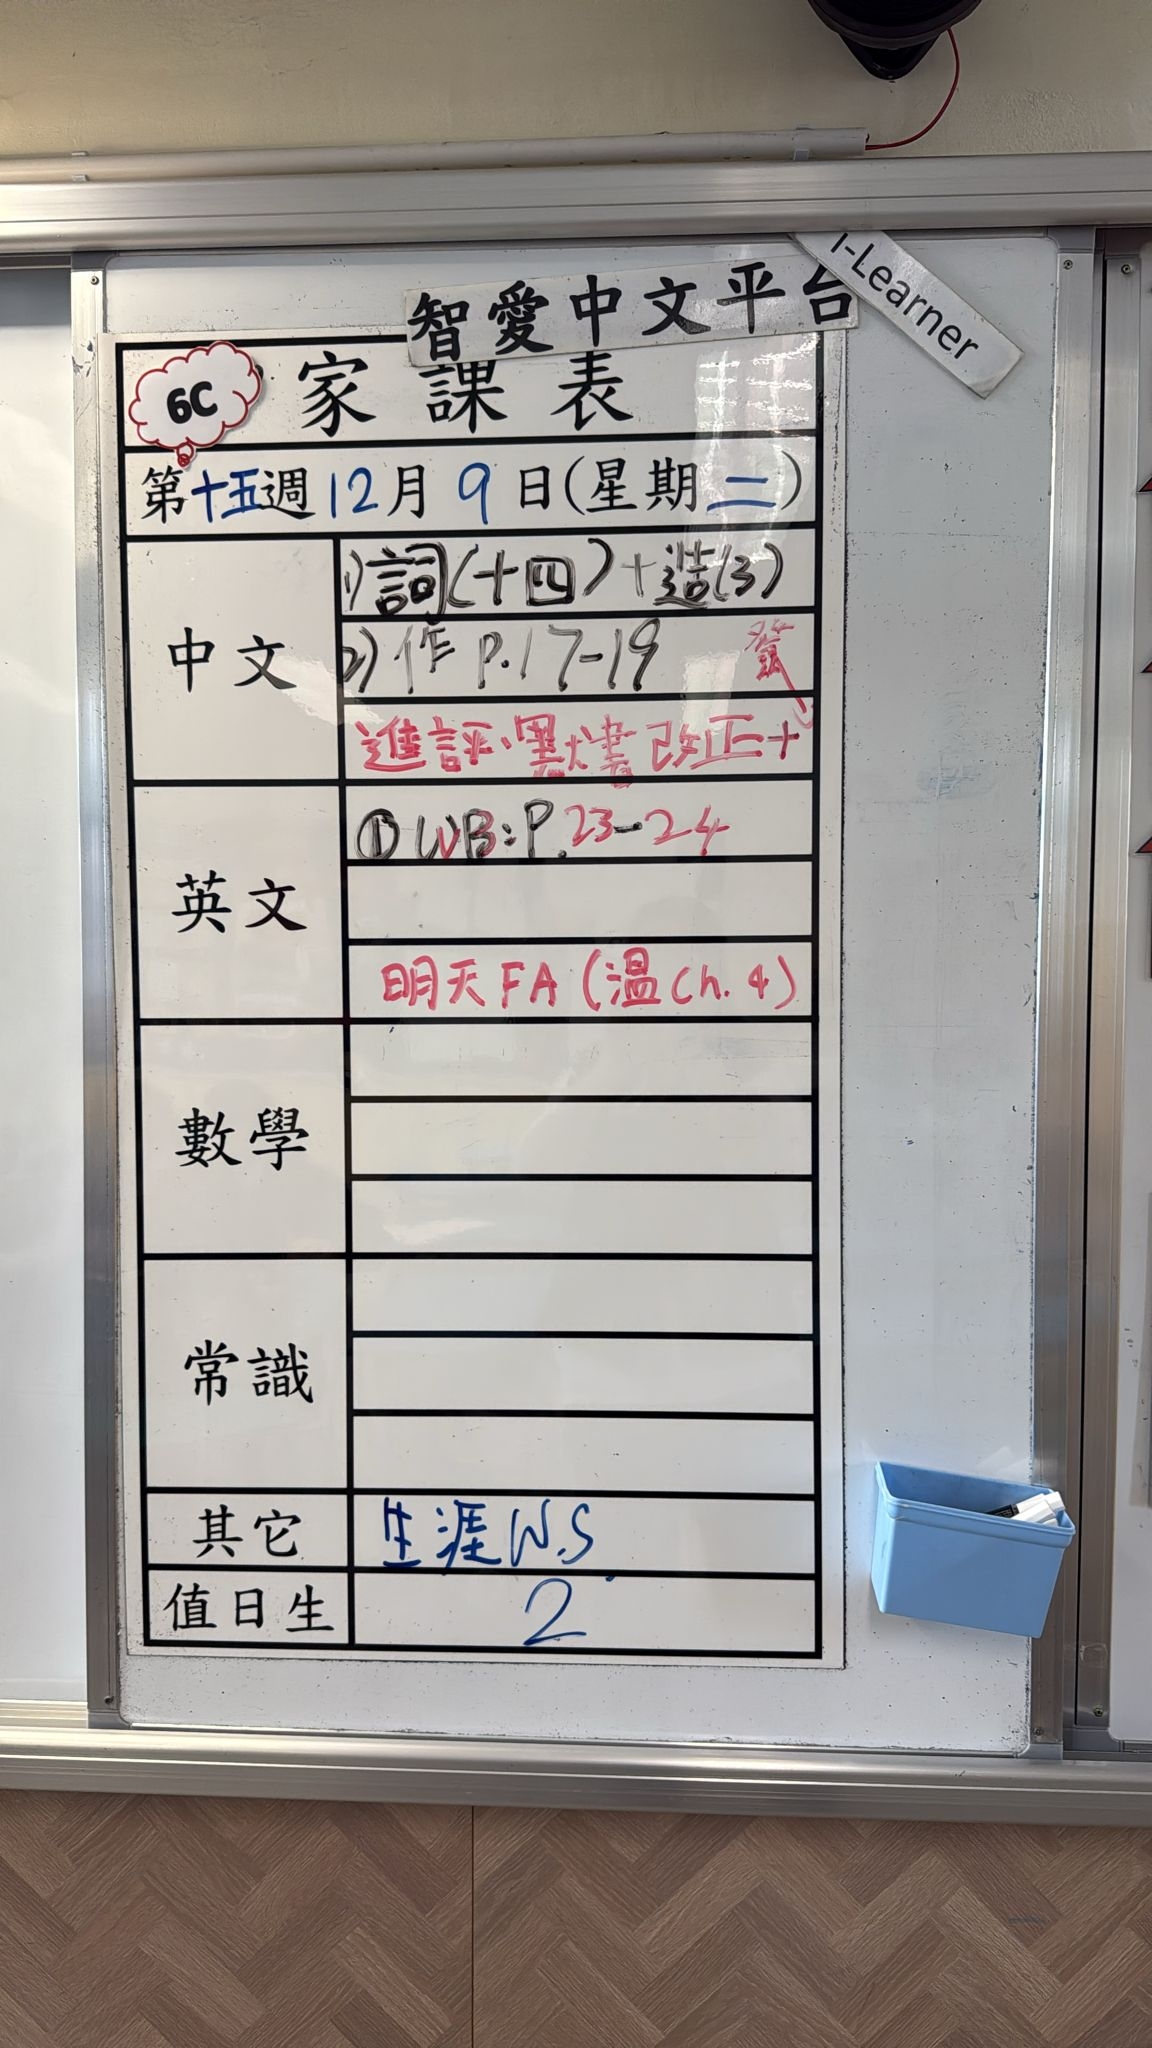 智愛中文平台
I-Learner
6C 家課表
第十五週12月9日(星期二)
中文
1)詞(十四)+造(3)
2)作 P.17-19 簽
進評.默書改正+
英文
① WB:P.23-24
明天FA(溫ch.4)
數學
常識
其它
生涯W.S
值日生
2